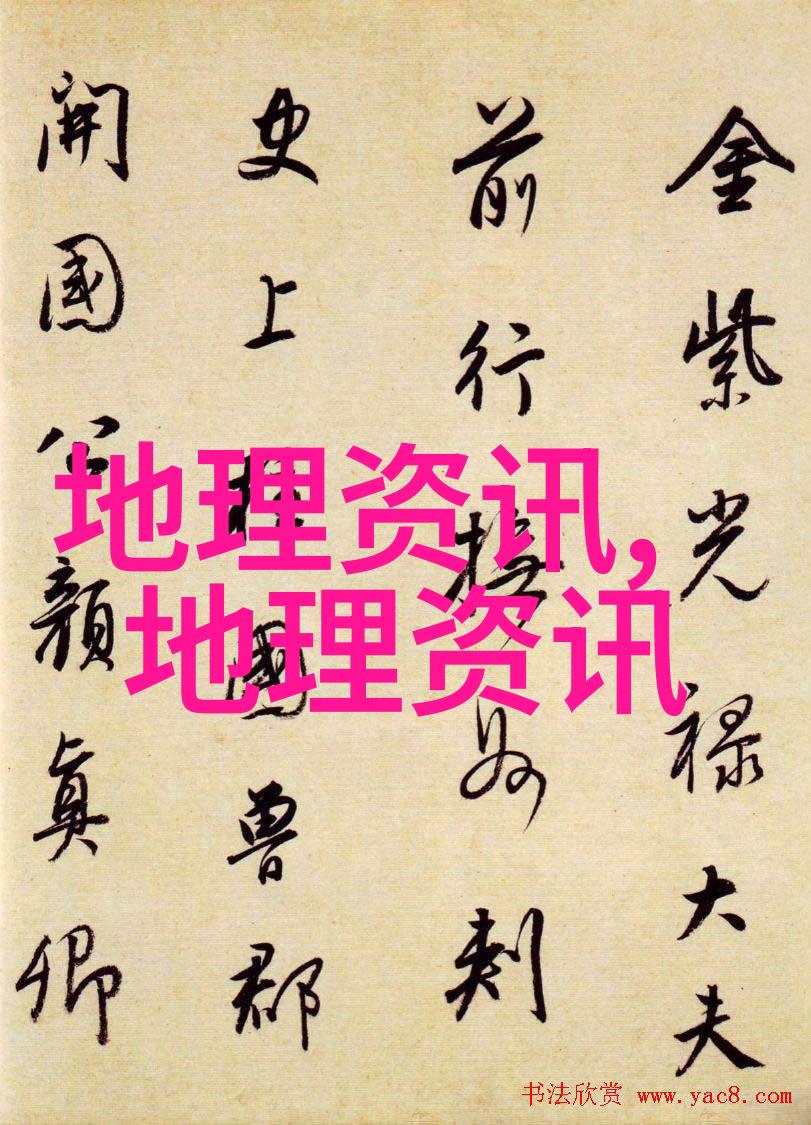 金紫光禄大夫
前行撫州刺
史上柱國魯郡
開國公顔真卿
地理资讯,
地理资讯
书法欣赏 www.yac8.com